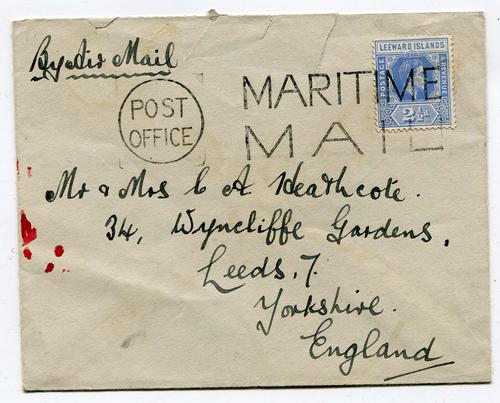 By Air Mail
POST
OFFICE
MARITIME
MAIL
LEEWARD ISLANDS
POSTAGE
& REVENUE
2½d
Mr & Mrs C A Heathcote.
34, Wyncliffe Gardens,
Leeds, 7.
Yorkshire.
England